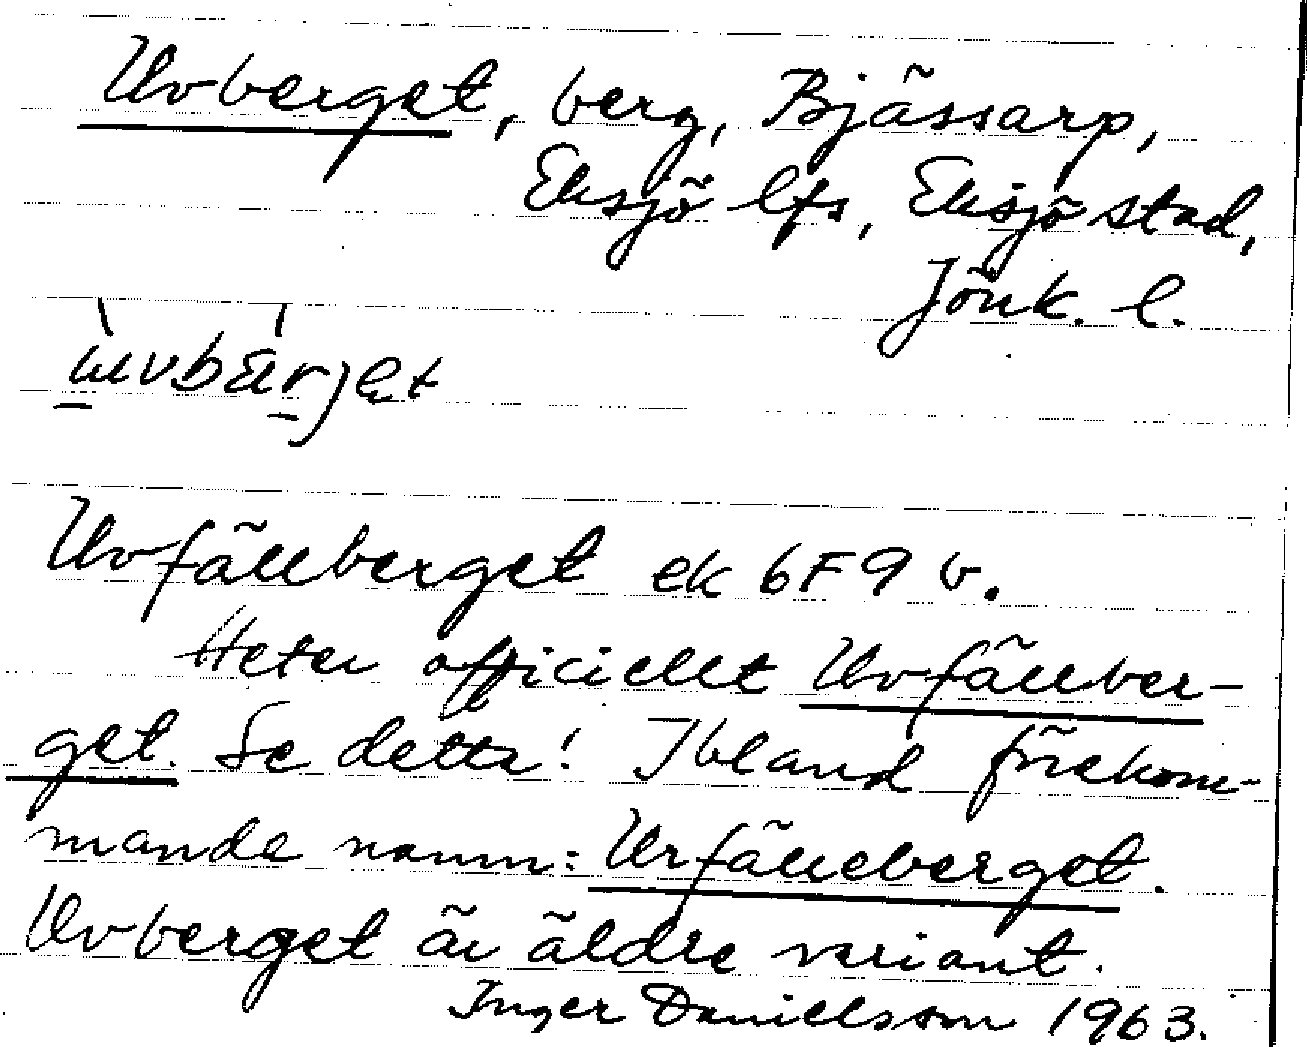 Uvberget, berg, Bjässarp,
Eksjö lfs, Eksjö stad,
Jönk. l.
ùvbárjet
Uvfällberget ek 6F9b.
Heter officiellt Uvfällber-
get. Se detta! Ibland förekom-
mande namn: Urfälleberget.
Uvberget är äldre variant.
Inger Danielsson 1963.